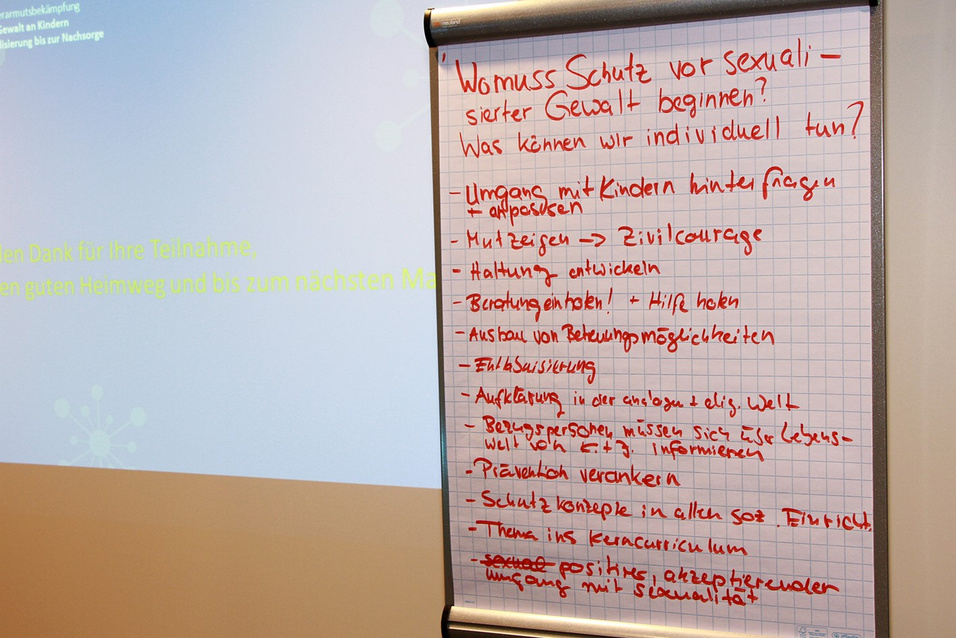 erarmutsbekämpfung
Gewalt an Kindern
lisierung bis zur Nachsorge
len Dank für Ihre Teilnahme,
en guten Heimweg und bis zum nächsten Ma
Wo muss Schutz vor sexuali-
sierter Gewalt beginnen?
Was können wir individuell tun?
- Umgang mit Kindern hinterfragen
+ anpassen
- Mut zeigen -> Zivilcourage
- Haltung entwickeln
- Beratung einholen! + Hilfe holen
- Ausbau von Betreuungsmöglichkeiten
- Enttabuisierung
- Aufklärung in der analogen + dig. Welt
- Bezugspersonen müssen sich über Lebens-
welt von K. + J. informieren
- Prävention verankern
- Schutzkonzepte in allen soz. Einricht.
- Thema ins Kerncurriculum
- sexual positives, akzeptierender
umgang mit sexualität